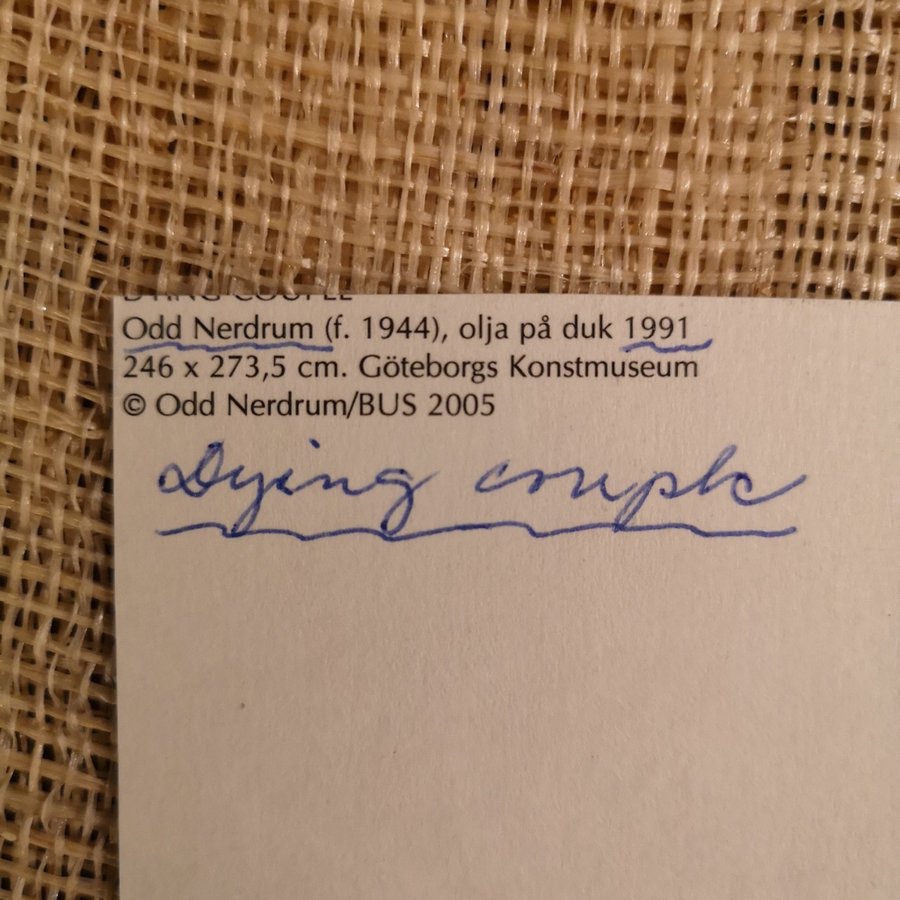 DYING COUPLE
Odd Nerdrum (f. 1944), olja på duk 1991
246 x 273,5 cm. Göteborgs Konstmuseum
© Odd Nerdrum/BUS 2005
Dying couple